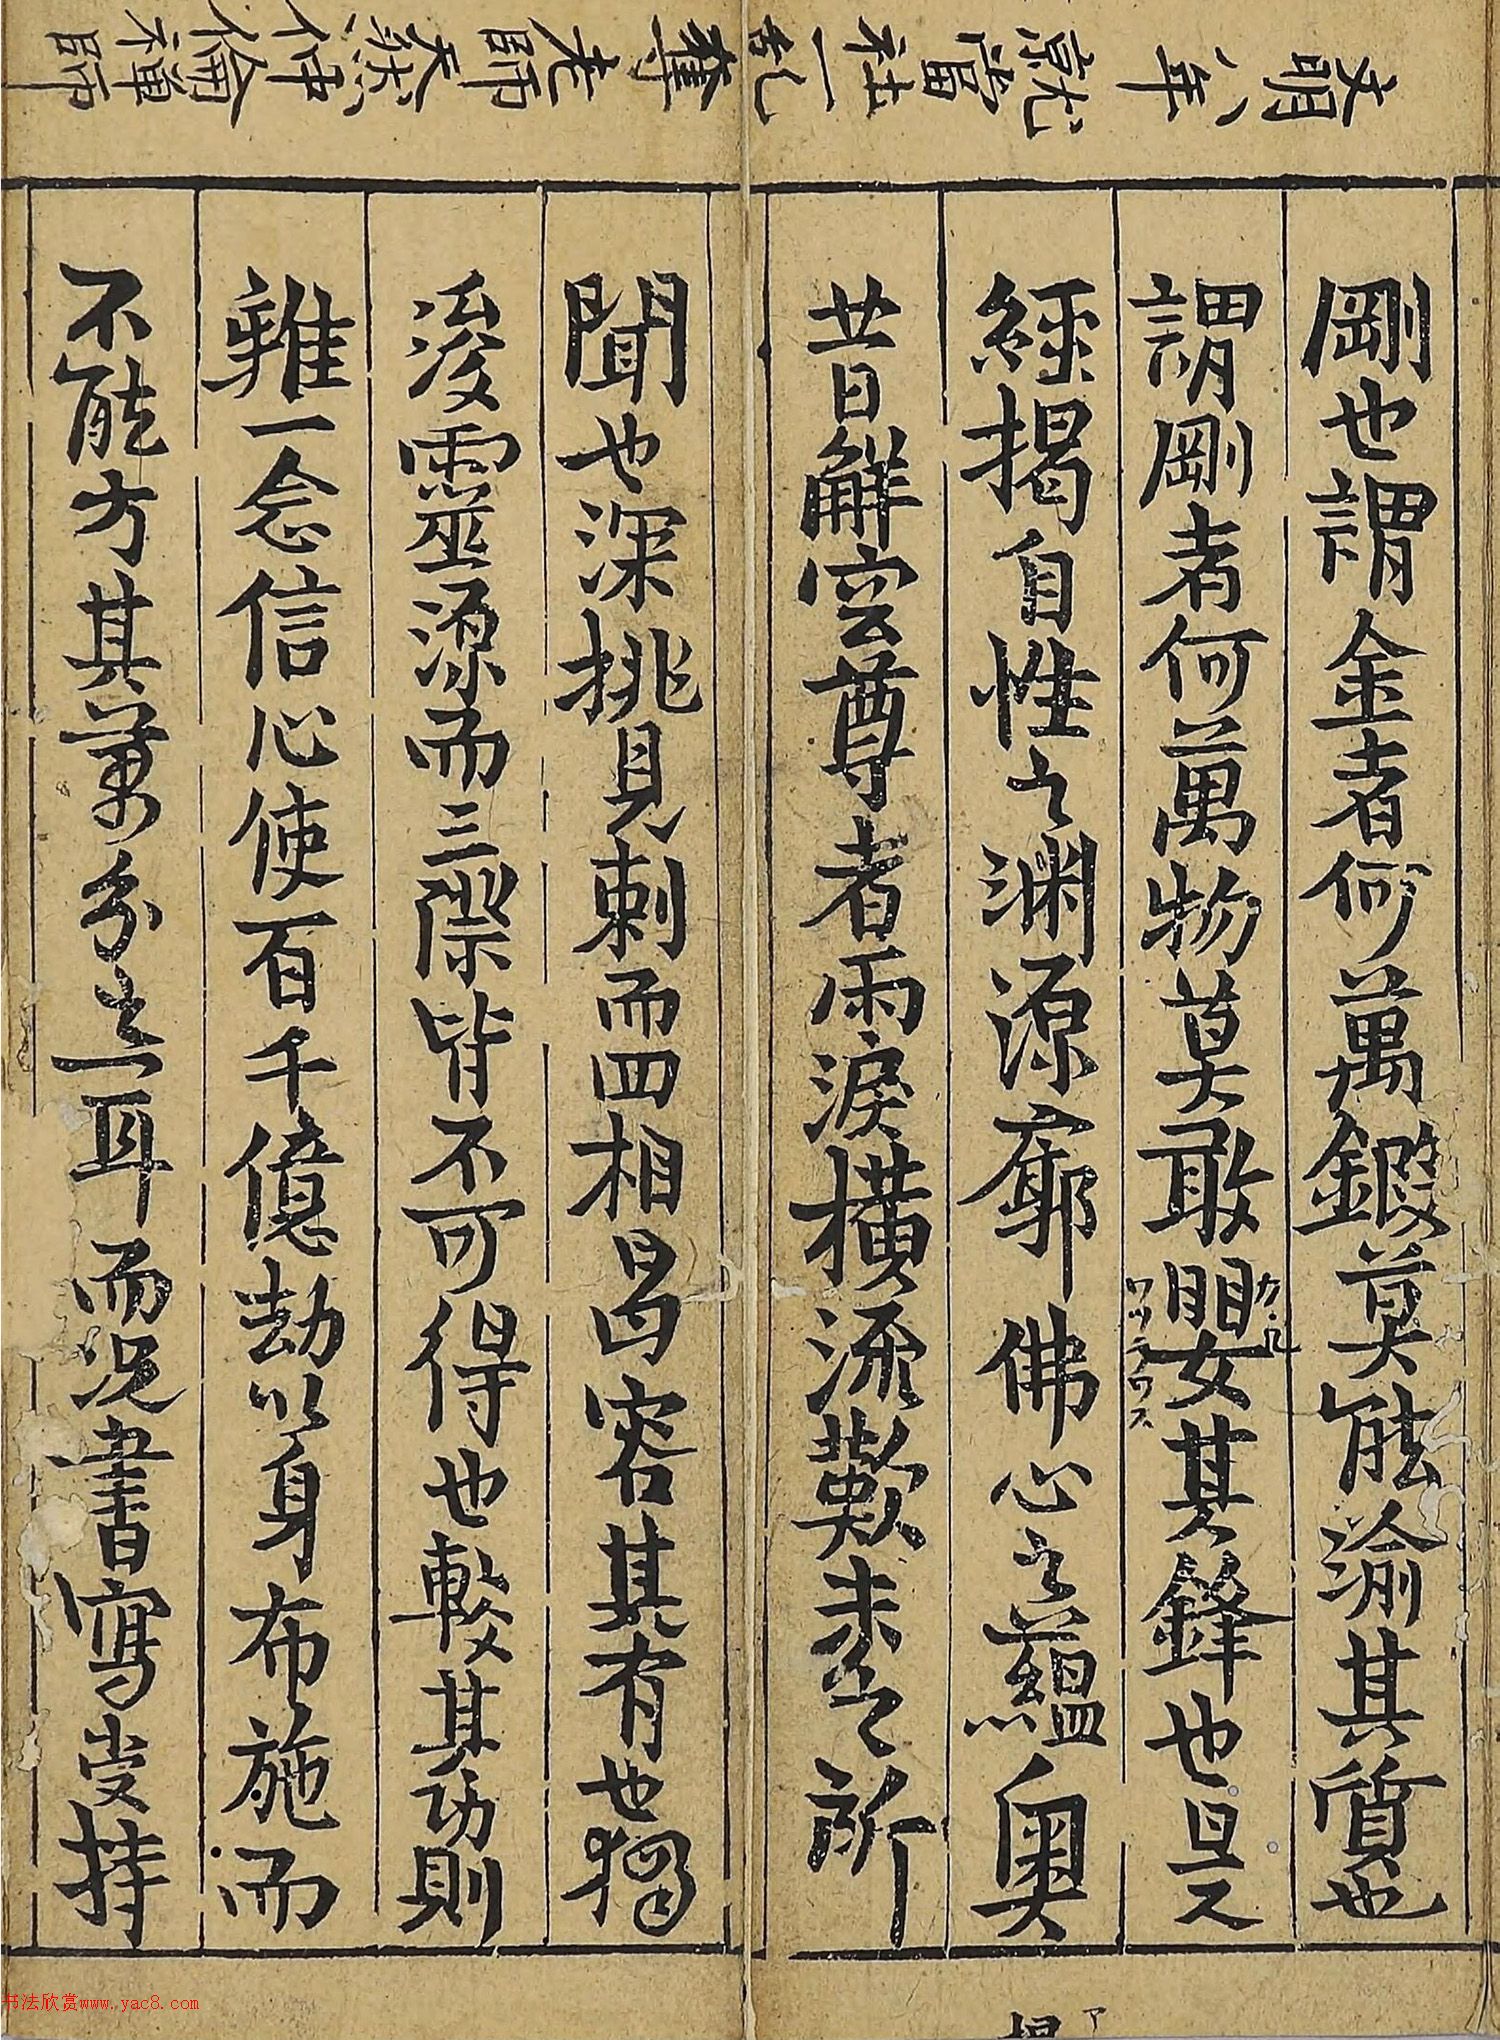 文明八年就當社一乱奪老師天然仲倫禅師
剛也謂金者何萬鍛莫能渝其質也
謂剛者何萬物莫敢嬰其鋒也且又
ワツラワス
經揭自性之渊源廓佛心之蘊奧
昔日解空尊者雨淚橫流歎未之所
聞也深挑見刺而四相曷容其有也獨
浚靈源而三際皆不可得也較其功則
雖一念信心使百千億劫以身布施而
不能方其萬分之一耳而況書寫受持
书法欣赏www.yac8.com